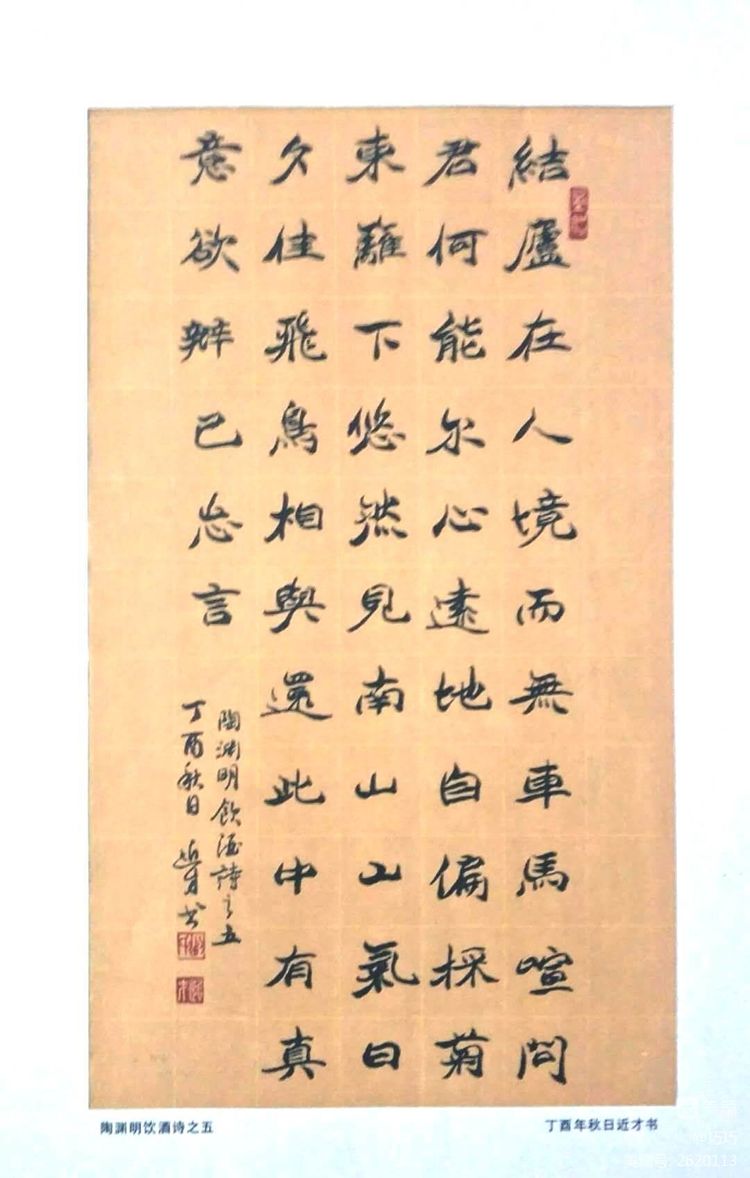 結廬在人境而無車馬喧問
君何能尔心遠地自偏採菊
東籬下悠然見南山山氣日
夕佳飛鳥相與還此中有真
意欲辨已忘言
陶渊明飲酒詩之五
丁酉秋日近才书
陶渊明饮酒诗之五
丁酉年秋日近才书
2620113